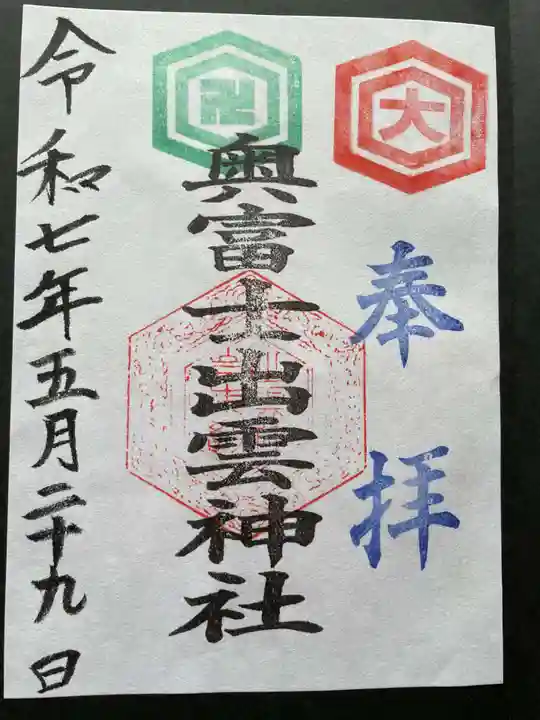 大
奉拝
卍
奥富士出雲神社
令和七年五月二十九日